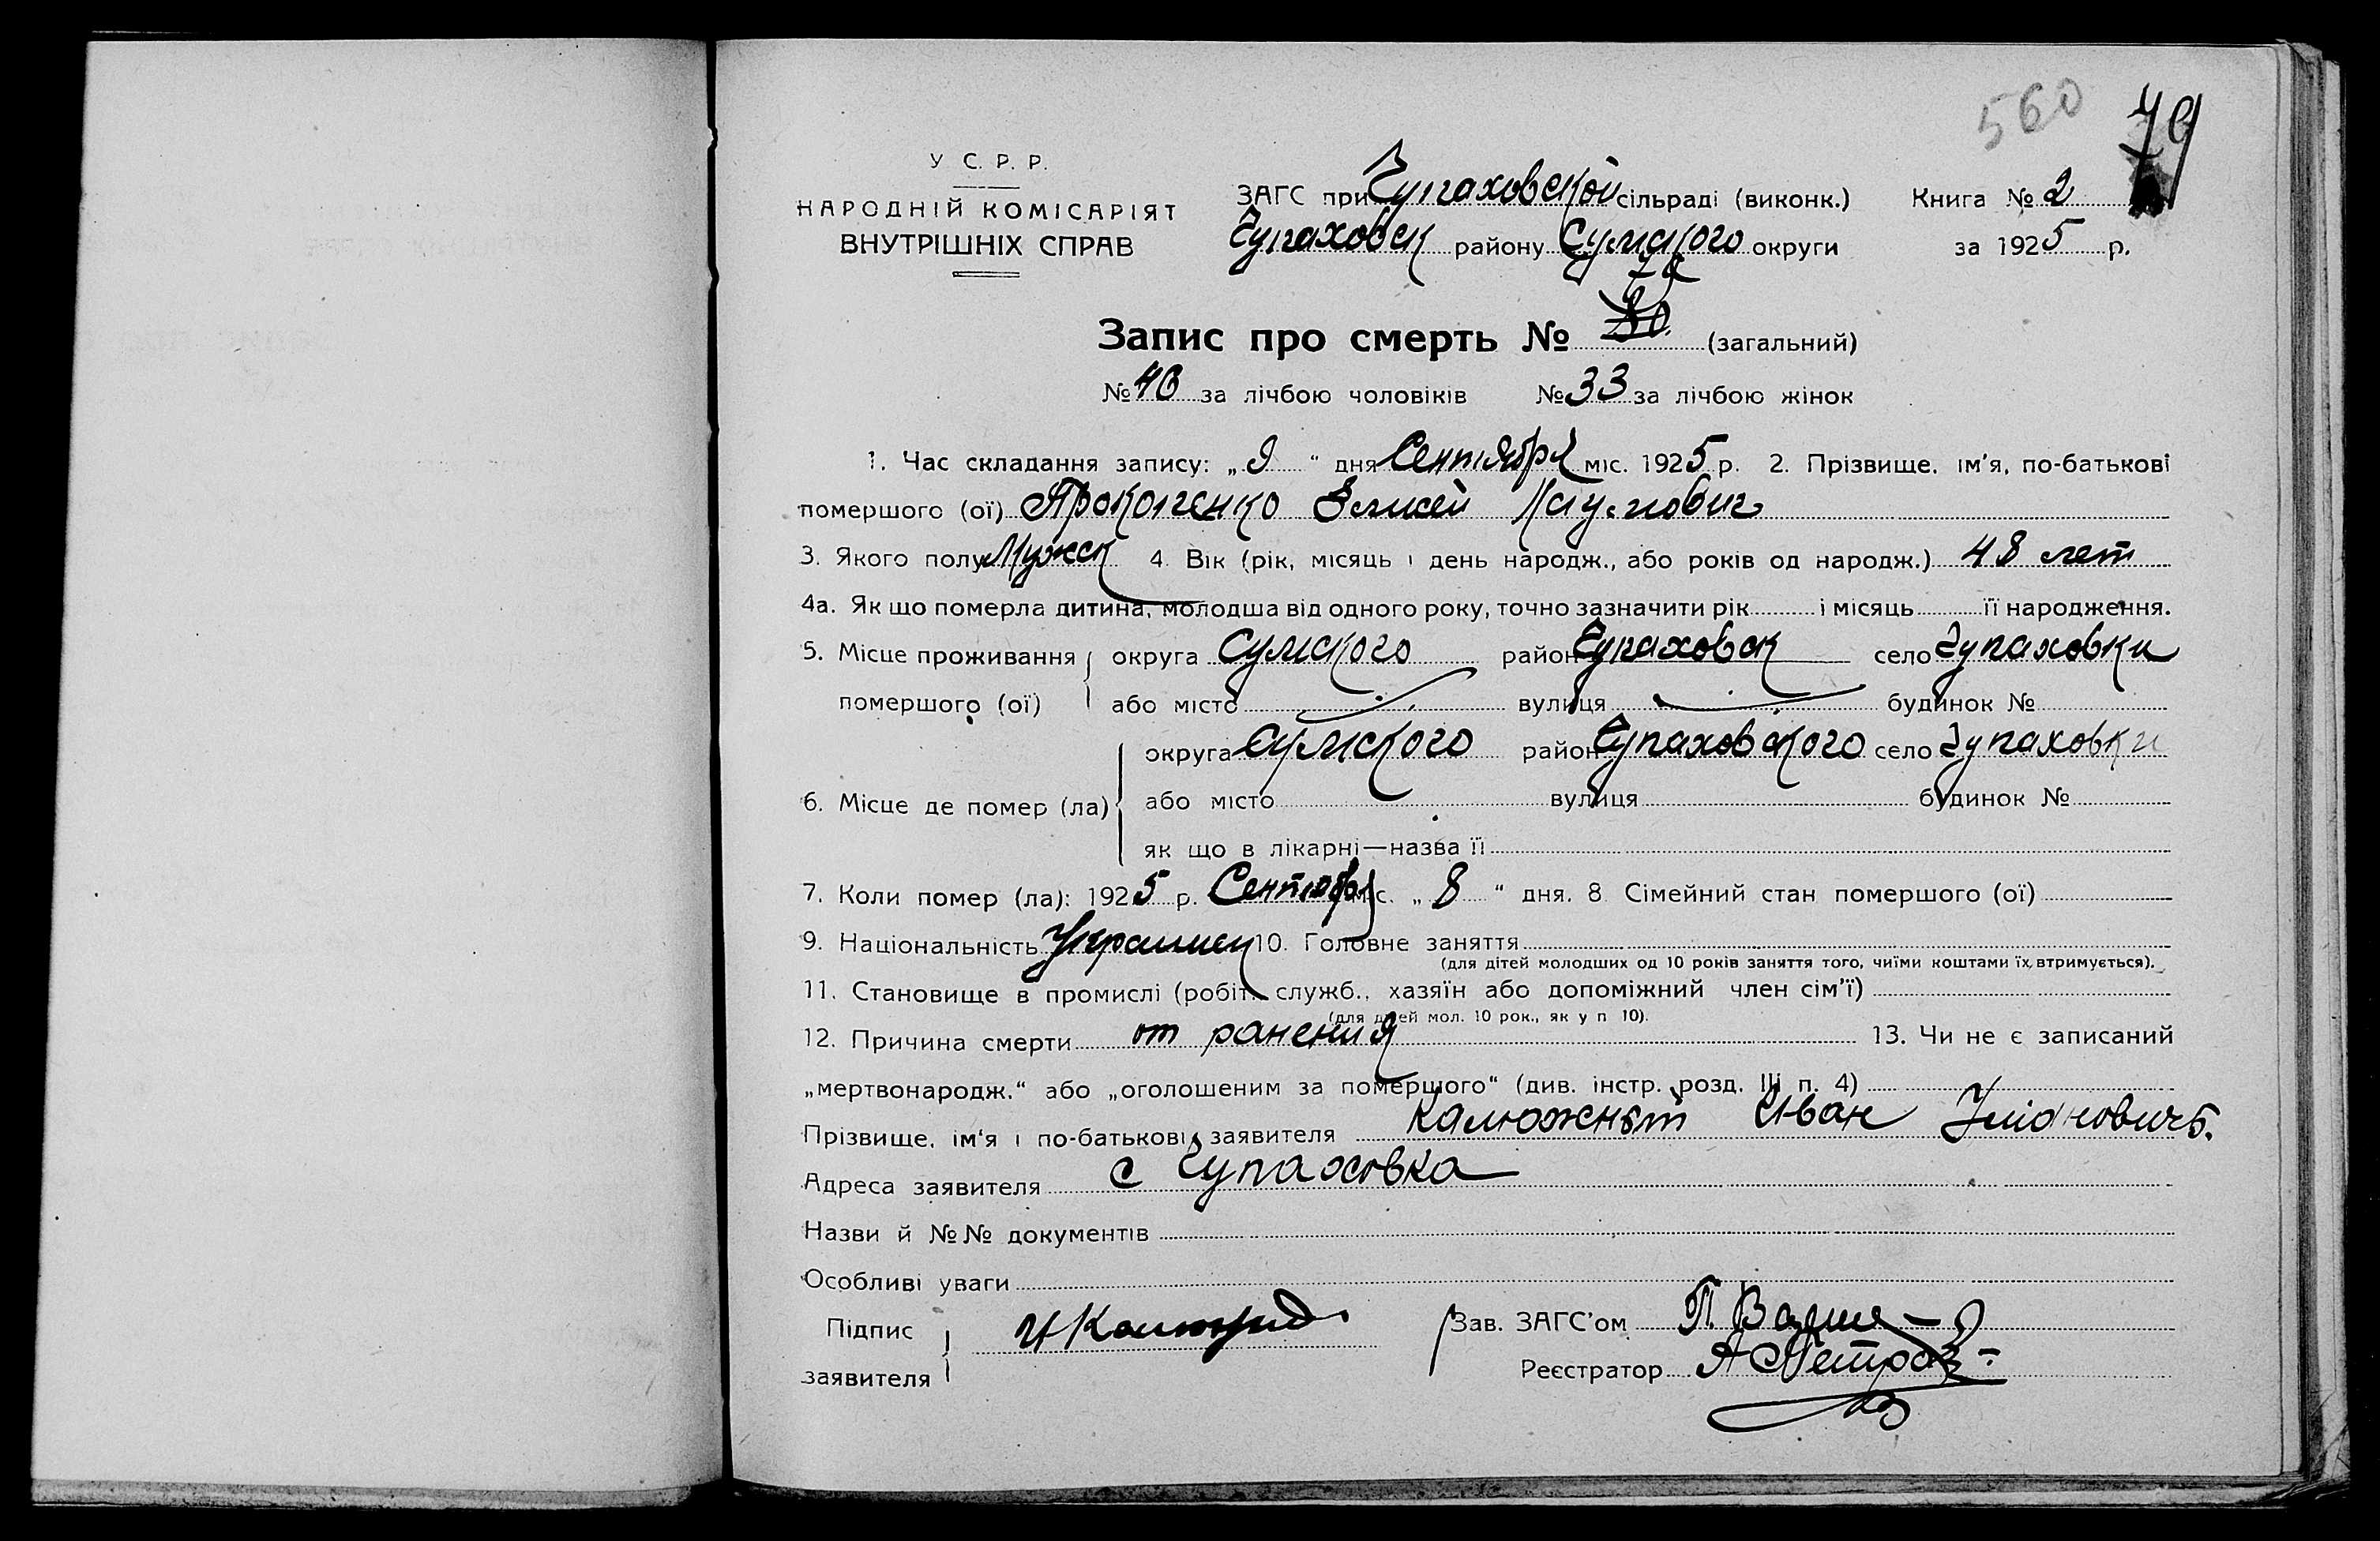 560 79
У С. Р. Р.
НАРОДНІЙ КОМІСАРІЯТ
ВНУТРІШНІХ СПРАВ
ЗАГС при Чупаховской сільраді (виконк.) Книга № 2
Чупаховск району Сумского округи за 1925 р.
Запис про смерть № (загальний)
№ 46 за лічбою чоловіків № 33 за лічбою жінок
1. Час складання запису: „ 9 “ дня Сентября міс. 1925 р. 2. Прізвище, ім'я, по-батькові
помершого (ої) Прокопенко Элисей Наумович
3. Якого полу Мужск 4. Вік (рік, місяць і день народж., або років од народж.) 48 лет
4а. Як що померла дитина, молодша від одного року, точно зазначити рік і місяць її народження.
5. Місце проживання округа Сумского район Чупаховск село Чупаховки
помершого (ої) або місто вулиця будинок №
округа Сумского район Чупаховского село Чупаховки
6. Місце де помер (ла) або місто вулиця будинок №
як що в лікарні—назва її
7. Коли помер (ла): 1925 р. Сентябр міс. „ 8 “ дня. 8. Сімейний стан помершого (ої)
9. Національність Украинец 10. Головне заняття
(для дітей молодших од 10 років заняття того, чиїми коштами їх втримується).
11. Становище в промислі (робіт. служб., хазяїн або допоміжний член сім'ї)
(для дітей мол. 10 рок., як у п 10).
12. Причина смерти от ранения 13. Чи не є записаний
„мертвонародж.“ або „оголошеним за помершого“ (див. інстр. розд. III п. 4)
Прізвище, ім'я і по-батькові заявителя Калюжный Иван
Адреса заявителя с Чупаховка
Назви й №№ документів
Особливі уваги
Підпис
заявителя
Зав. ЗАГС'ом
Реєстратор